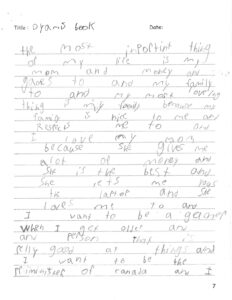 Title: Dyami's book Date:
the most importint thing
of my life is my
mom and money and
games to and my family
to and my most loveing
thing is my family because my
family is nice to me and
me to and
I love my mom
because she gives me
alot of money and
She is the best and
She lets me
the laptop and She
loves me to and
I want to be a gamer
when I get older and
person that is
relly good at things and
I want to be the
Priminister of canada and I
7